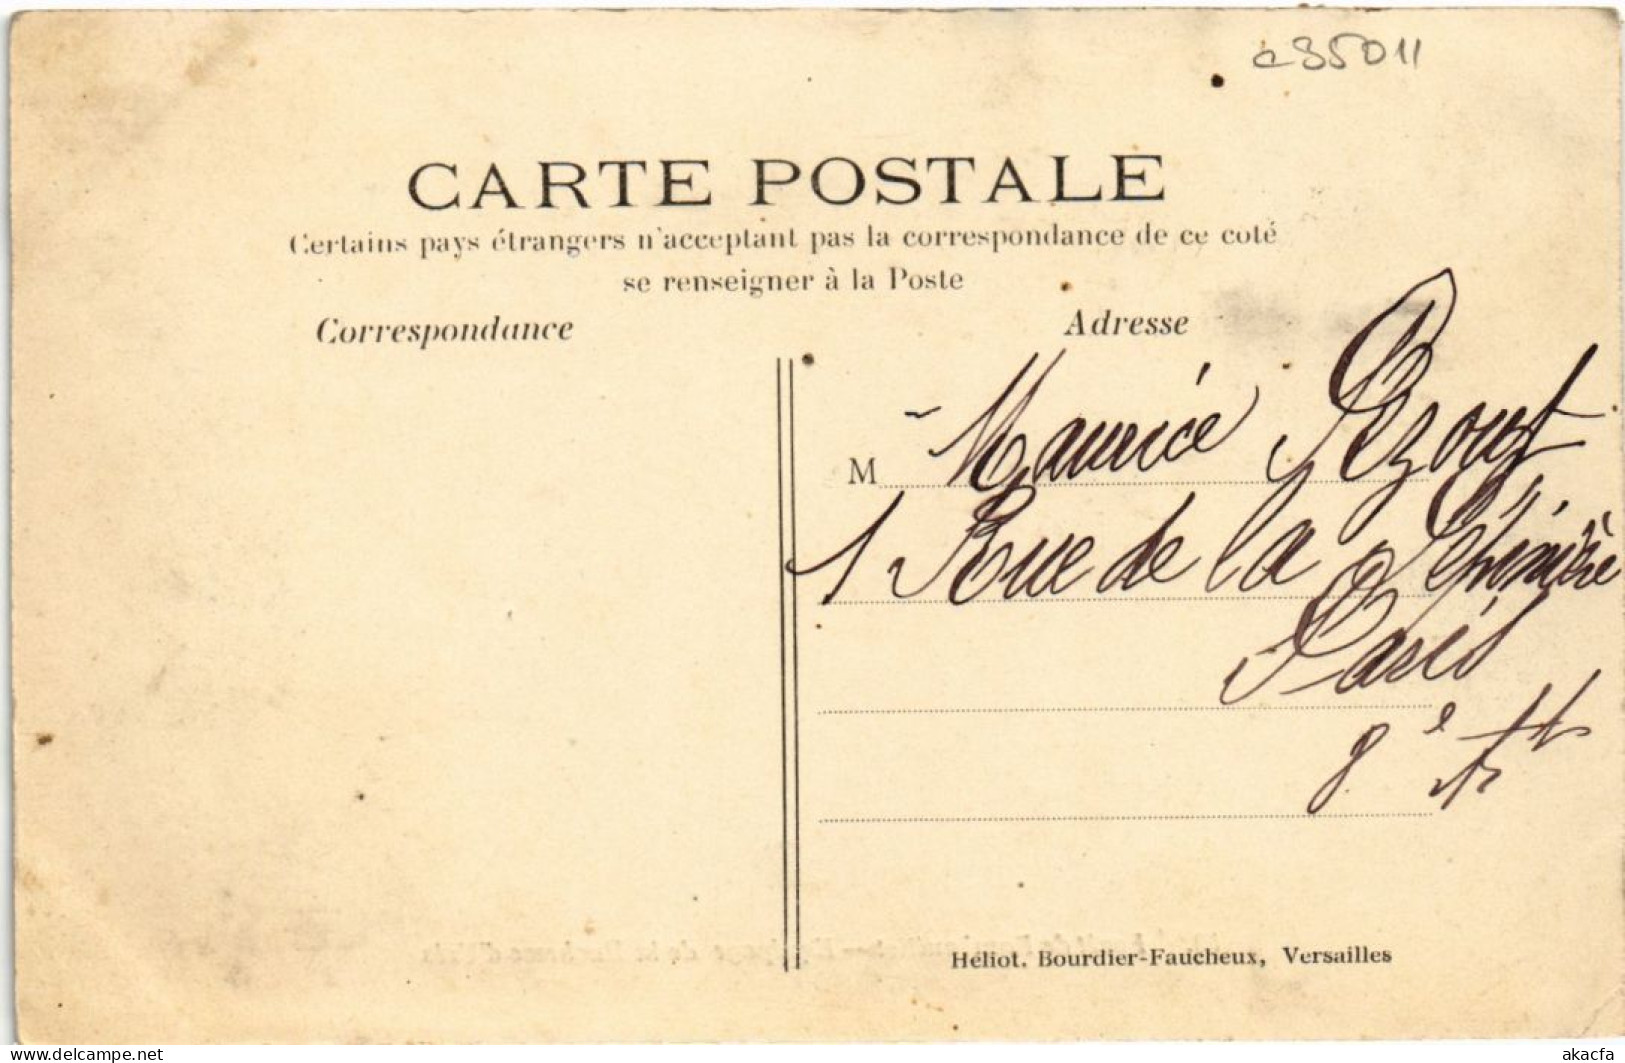 c35011
CARTE POSTALE
Certains pays étrangers n'acceptant pas la correspondance de ce coté
se renseigner à la Poste
Correspondance
Adresse
M Maurice
1 Rue de la Pépinière
Paris
8e Art
Héliot. Bourdier-Faucheux, Versailles
www.delcampe.net
akacfa